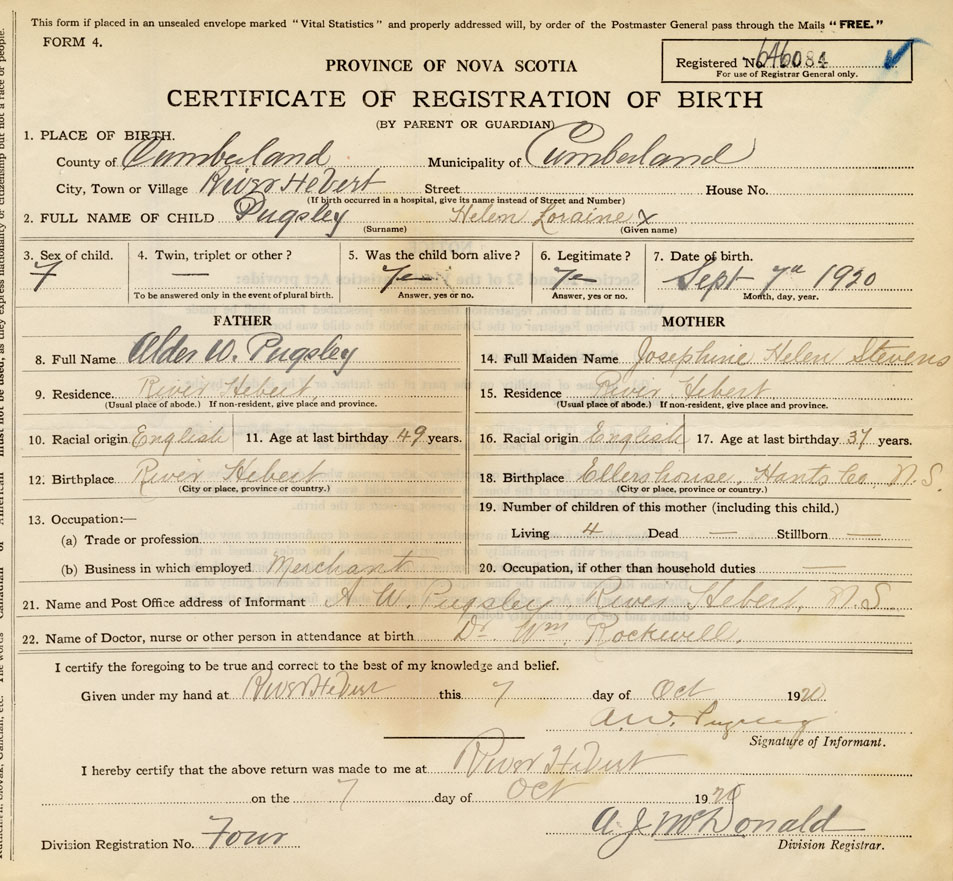 This form if placed in an unsealed envelope marked "Vital Statistics" and properly addressed will, by order of the Postmaster General pass through the Mails "FREE."
FORM 4.
Registered No. 646084
For use of Registrar General only.
PROVINCE OF NOVA SCOTIA
CERTIFICATE OF REGISTRATION OF BIRTH
(BY PARENT OR GUARDIAN)
1. PLACE OF BIRTH.
County of Cumberland Municipality of Cumberland
City, Town or Village River Hebert Street House No.
(If birth occurred in a hospital, give its name instead of Street and Number)
2. FULL NAME OF CHILD Pugsley Helen Loraine x
(Surname) (Given name)
3. Sex of child. 4. Twin, triplet or other? 5. Was the child born alive? 6. Legitimate? 7. Date of birth.
F — Sept 7th 1920
To be answered only in the event of plural birth. Answer, yes or no. Answer, yes or no. Month, day, year.
FATHER MOTHER
8. Full Name Alder W. Pugsley 14. Full Maiden Name Josephine Helen Stevens
9. Residence. River Hebert. 15. Residence River Hebert.
(Usual place of abode.) If non-resident, give place and province. (Usual place of abode.) If non-resident, give place and province.
10. Racial origin English 11. Age at last birthday 49 years. 16. Racial origin English 17. Age at last birthday 37 years.
12. Birthplace River Hebert 18. Birthplace Ellershouse, Hants Co, N.S.
(City or place, province or country.) (City or place, province or country.)
13. Occupation:— 19. Number of children of this mother (including this child.)
(a) Trade or profession Living 4 Dead — Stillborn —
(b) Business in which employed Merchant 20. Occupation, if other than household duties —
21. Name and Post Office address of Informant A. W. Pugsley River Hebert, N.S.
22. Name of Doctor, nurse or other person in attendance at birth Dr. Wm. Rockwell.
I certify the foregoing to be true and correct to the best of my knowledge and belief.
Given under my hand at River Hebert this 7 day of Oct 1920
A.W. Pugsley
Signature of Informant.
I hereby certify that the above return was made to me at River Hebert
on the 7 day of Oct 1920
A. J. McDonald
Division Registration No. Four Division Registrar.